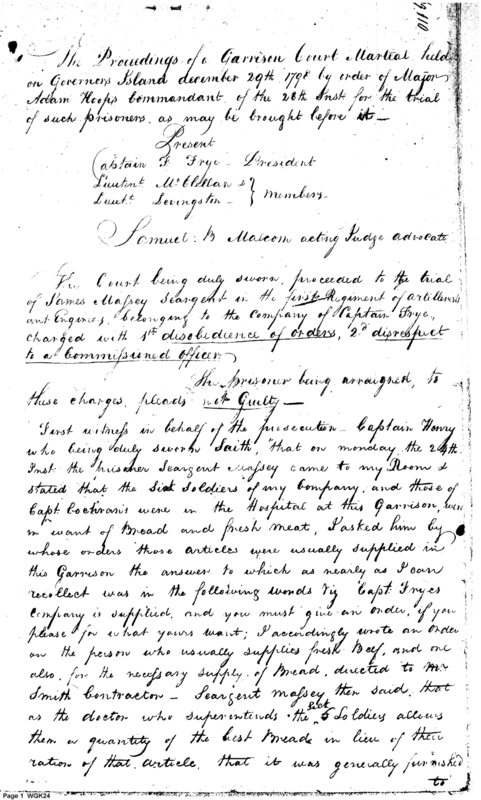 9110
The Proceedings of a Garrison Court Martial held
on Governors Island december 29th 1798 by order of Major
Adam Hoops Commandant, of the 28th Inst for the trial
of such prisoners, as may be brought before it —
Present
Captain F. Frye — President
Lieutent McClellan &
Lieut. Levingston — } members.
Samuel B Malcom acting Judge advocate
The Court being duly sworn, proceeded to the trial
of James Massey Seargent in the first Regiment of artillerists
and Engineers, belonging to the Company of Captain Frye,
charged with 1st disobedience of orders, 2d disrespect
to a Commissioned officer
The prisoner being arraigned, to
these charges, pleads not Guilty —
First witness in behalf of the prosecution — Captain Henry
who being duly sworn Saith, "that on monday the 24th
Inst. the prisoner Seargent Massey came to my Room &
stated that the Sick Soldiers of my Company, and those of
Capt Cochran's were in the Hospital at this Garrison, were
in want of Bread and fresh meat, I asked him by
whose orders those articles were usually supplied in
this Garrison the answer to which as nearly as I can
recollect was in the following words Viz Capt. Fryes
Company is supplied, and you must give an order, if you
please for what yours want; I accordingly wrote an order
on the person who usually supplies fresh Beef, and one
also, for the necessary supply of Bread, directed to Mr
Smith Contractor — Seargent Massey then said, that
as the doctor who superintends the sick Soldiers allows
them a quantity of the best Bread in lieu of their
ration of that article, that it was generally furnished
to
Page 1 WGK24